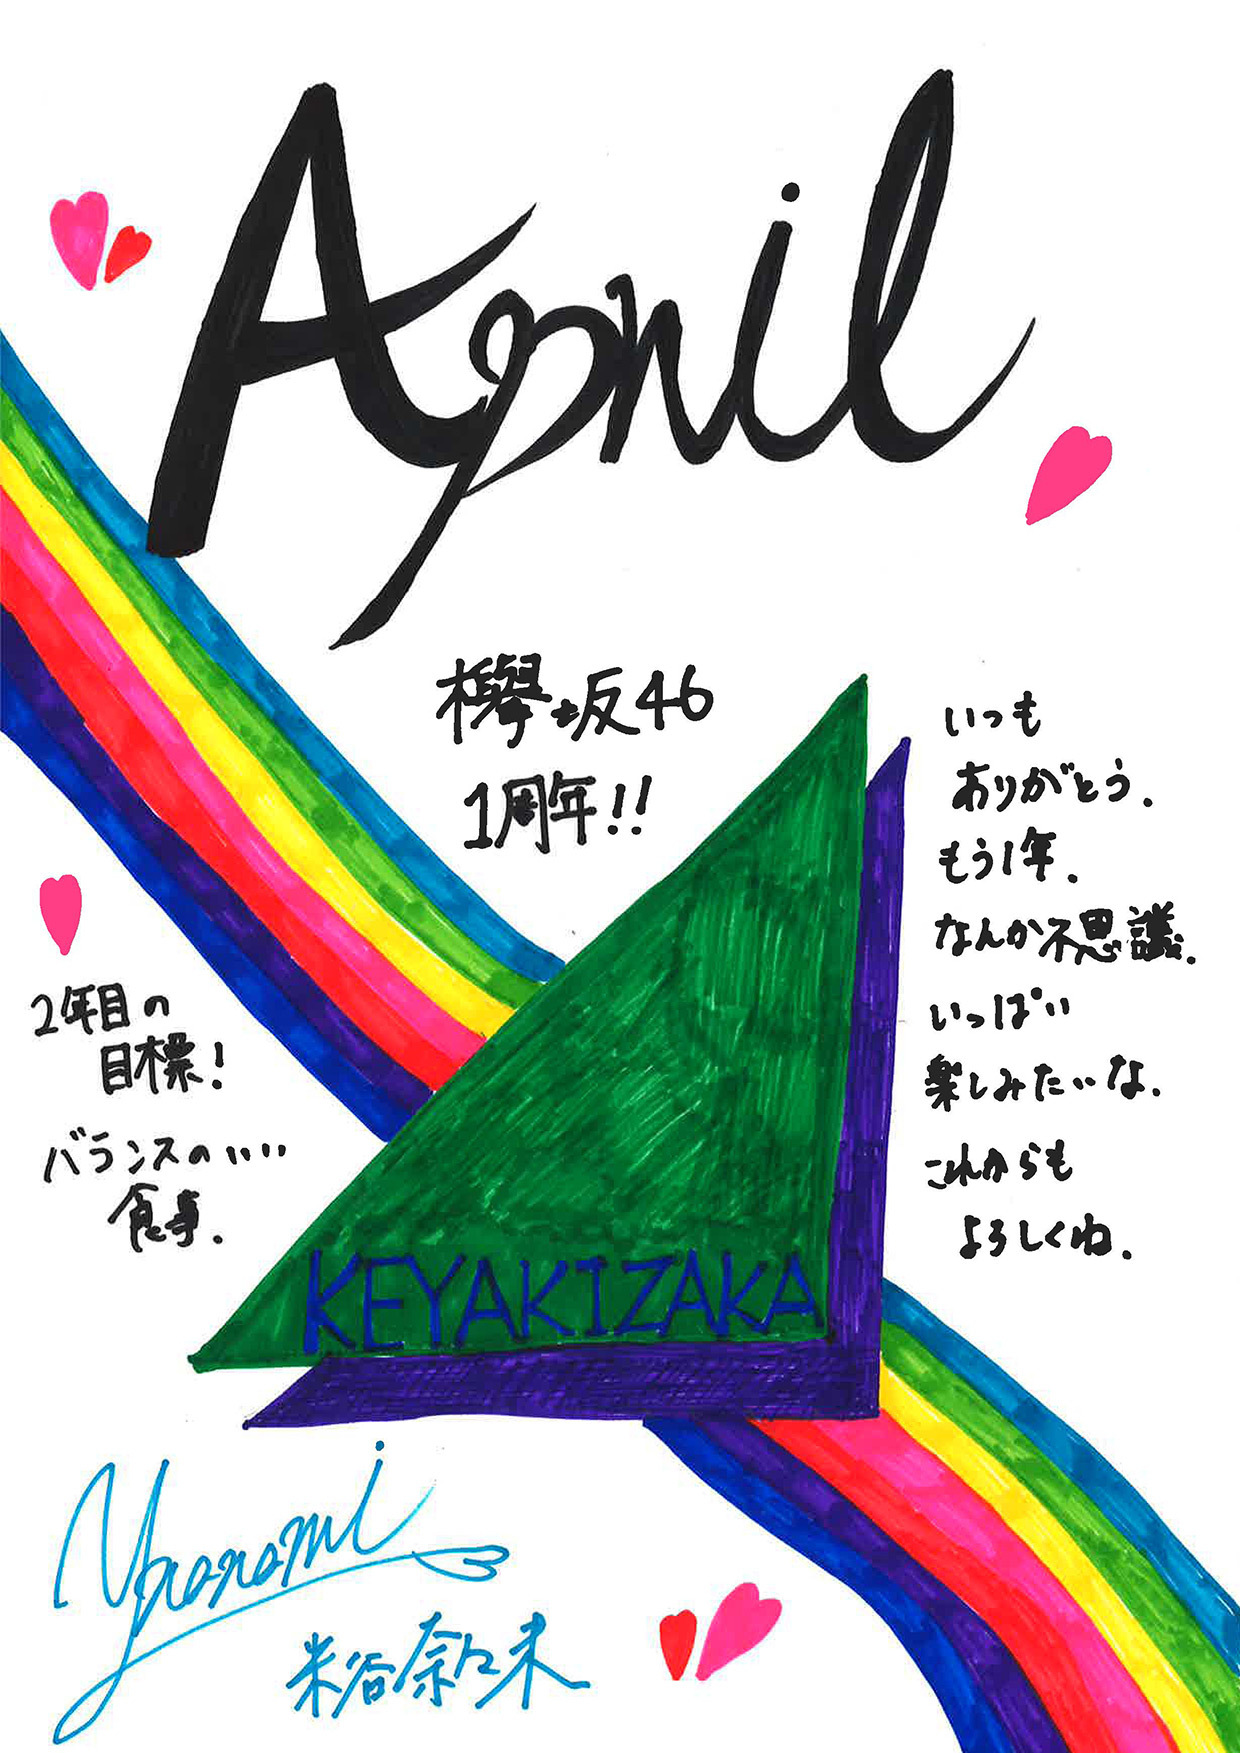 April
欅坂46
1周年!!
いつも
ありがとう.
もう1年.
なんか不思議.
いっぱい
楽しみたいな.
これからも
よろしくね.
2年目の
目標!
バランスのいい
食事.
KEYAKIZAKA
米谷奈々未